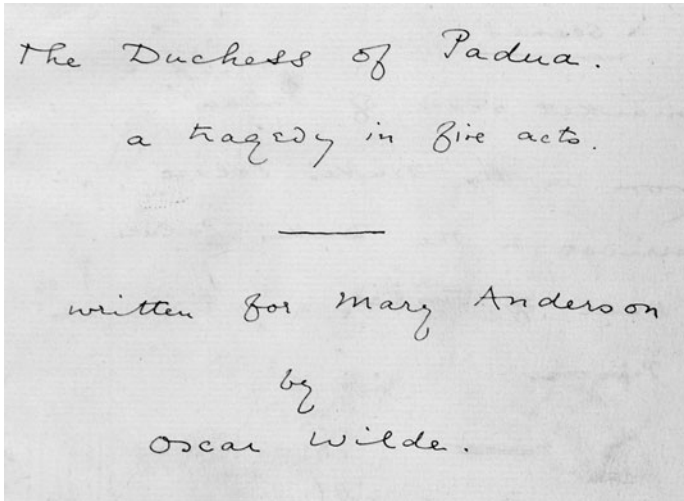 The Duchess of Padua.
a tragedy in five acts.
written for Mary Anderson
by
Oscar Wilde.